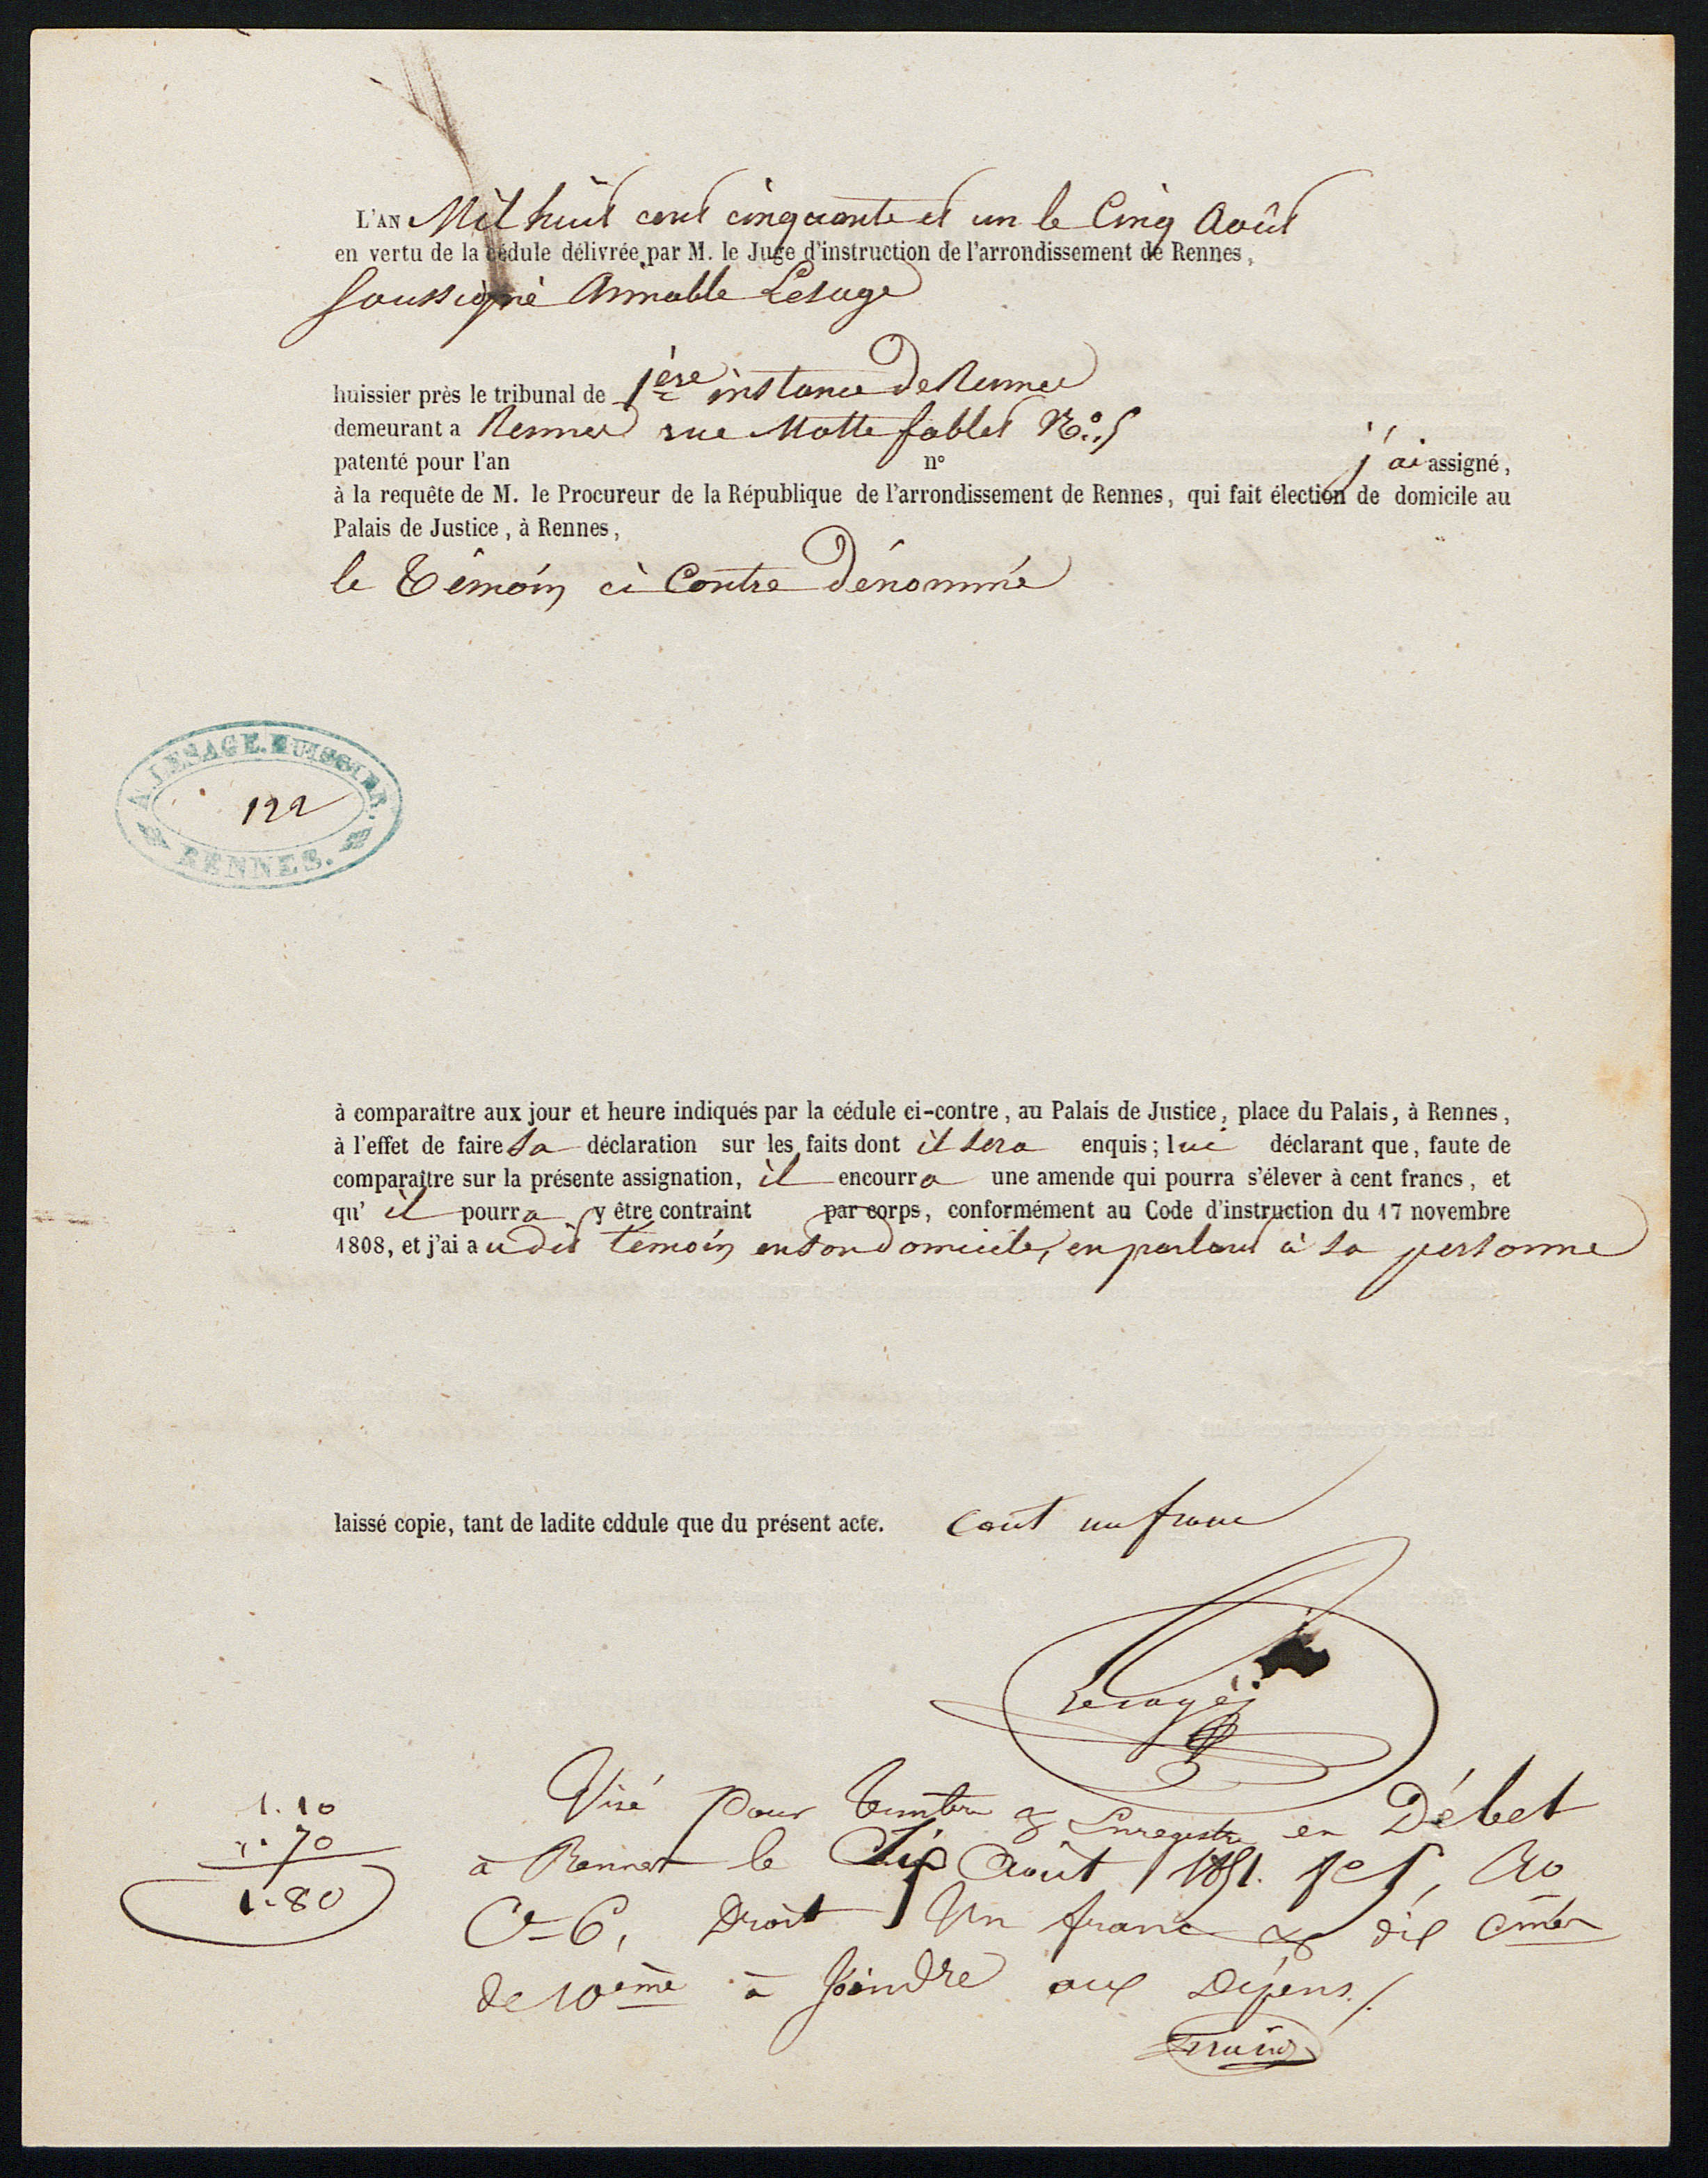 L'AN Mil huit cent cinquante et un le Cinq Août
en vertu de la cédule délivrée par M. le Juge d'instruction de l'arrondissement de Rennes,
Soussigné Aimable Lesage
huissier près le tribunal de 1ère instance De Rennes
demeurant a Rennes rue Motte fablet No. 5
patenté pour l'an n° j'ai assigné,
à la requête de M. le Procureur de la République de l'arrondissement de Rennes, qui fait élection de domicile au
Palais de Justice, à Rennes,
le Témoin ci Contre Dénommé
A. LESAGE. HUISSIER.
122
RENNES.
à comparaître aux jour et heure indiqués par la cédule ci-contre, au Palais de Justice, place du Palais, à Rennes,
à l'effet de faire sa déclaration sur les faits dont il sera enquis; lui déclarant que, faute de
comparaître sur la présente assignation, il encourra une amende qui pourra s'élever à cent francs, et
qu' il pourra y être contraint par corps, conformément au Code d'instruction du 17 novembre
1808, et j'ai audit témoin en son Domicile, en parlant à sa personne
laissé copie, tant de ladite cddule que du présent acte. Coût un franc
Lesage
1.10
". 70
1.80
Visé pour timbre & Enregistré en Débet
à Rennes le Six Août 1851. f° 5, Ro
Ce 6, Droit Un franc & dix cmes
de 10ème à Joindre aux Dépens./.